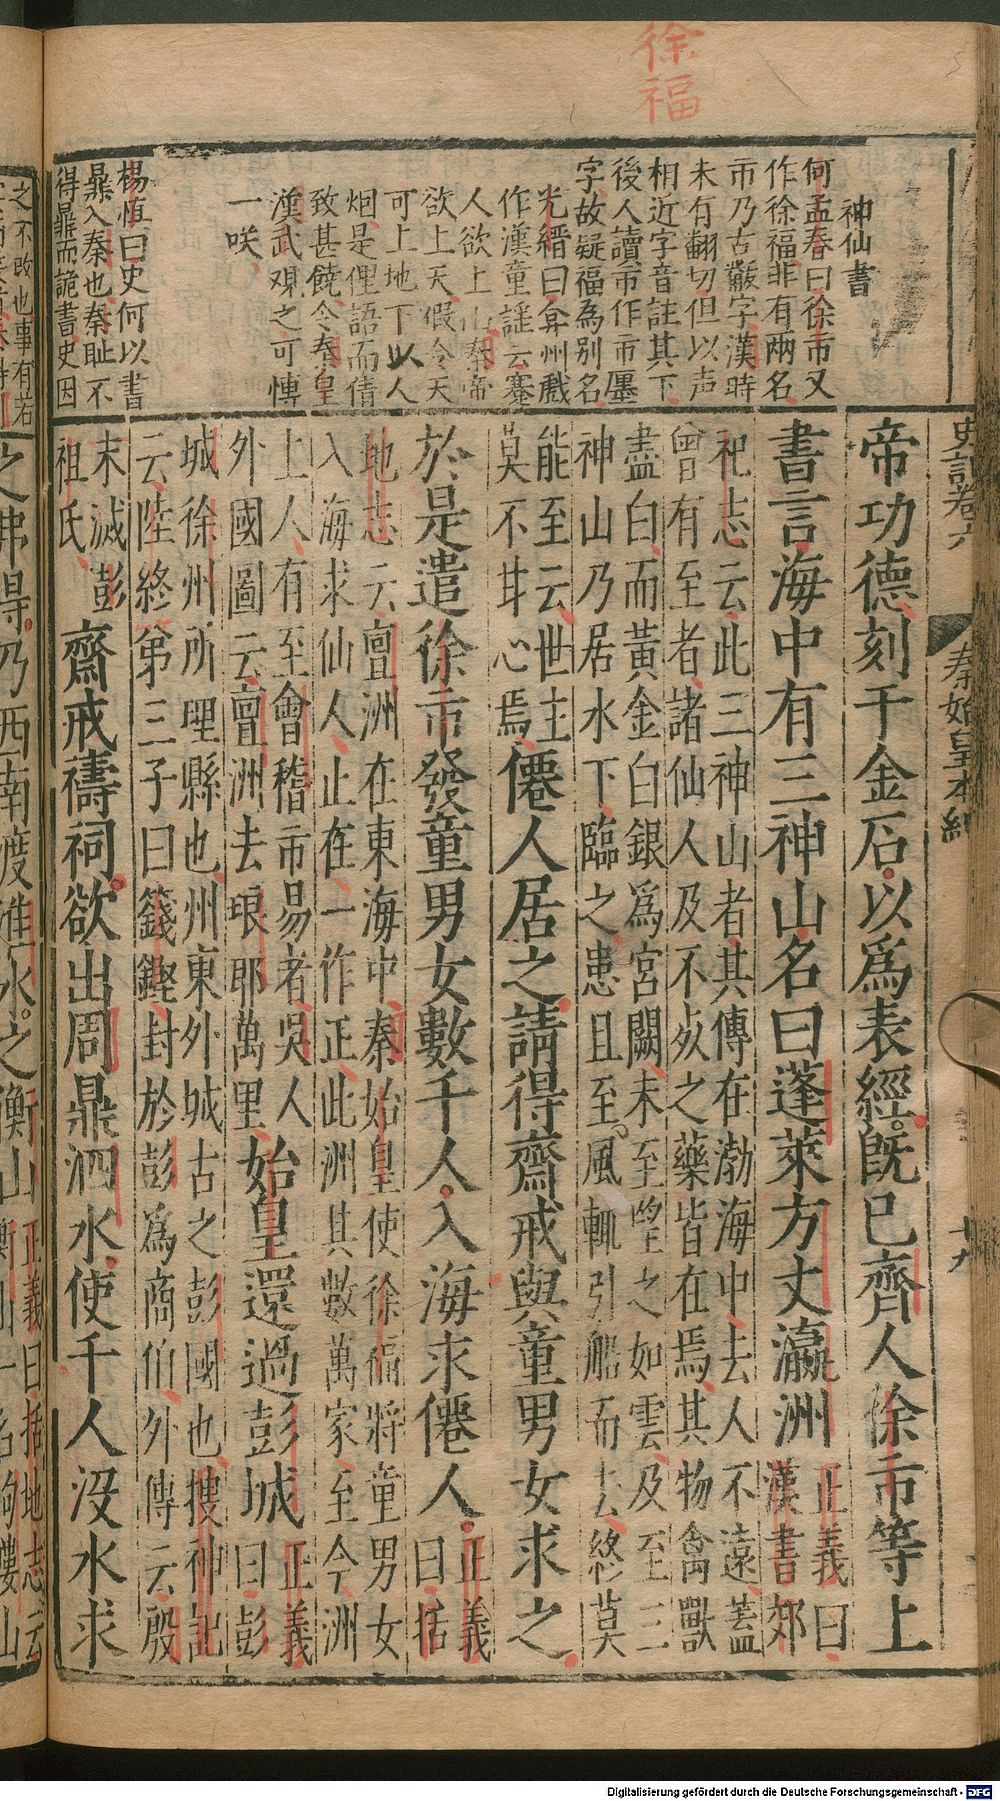 徐福
神仙書
何孟春曰徐市又
作徐福非有兩名
市乃古黻字漢時
未有翻切但以声
相近字音註其下
後人讀市作市廛
字故疑福為別名
光縉曰弇州戲
作漢童謡云蹇
人欲上山秦帝
欲上天假令天
可上地下以人
烟是俚語而倩
致甚饒令秦皇
漢武覌之可慱
一咲
楊慎曰史何以書
鼎入秦也秦耻不
得鼎而詭書史因
之不改也事有若
史記卷六
秦始皇本紀
十九
帝功德刻于金石以爲表經旣已齊人徐巿等上
書言海中有三神山名曰蓬萊方丈瀛洲
正義曰
漢書郊
祀志云此三神山者其傳在渤海中去人不遠蓋
曾有至者諸仙人及不歺之藥皆在焉其物禽獸
盡白而黃金白銀爲宮闕未至望之如雲及至三
神山乃居水下臨之患且至風輒引船而去終莫
能至云世主
莫不甘心焉
僊人居之請得齋戒與童男女求之
於是遣徐巿發童男女數千人入海求僊人
正義
曰括
地志云亶洲在東海中秦始皇使徐福將童男女
入海求仙人止在一作正此洲其數萬家至今洲
上人有至會稽市易者吳人
外國圖云亶洲去琅耶萬里
始皇還過彭城
正義
曰彭
城徐州所理縣也州東外城古之彭國也搜神記
云陸終第三子曰籛鏗封於彭爲商伯外傳云殷
末滅彭
祖氏
齋戒禱祠欲出周鼎泗水使千人没水求
之弗得乃西南渡淮水之衡山
正義曰括地志云
衡山一名岣嶁山
Digitalisierung gefördert durch die Deutsche Forschungsgemeinschaft - DFG